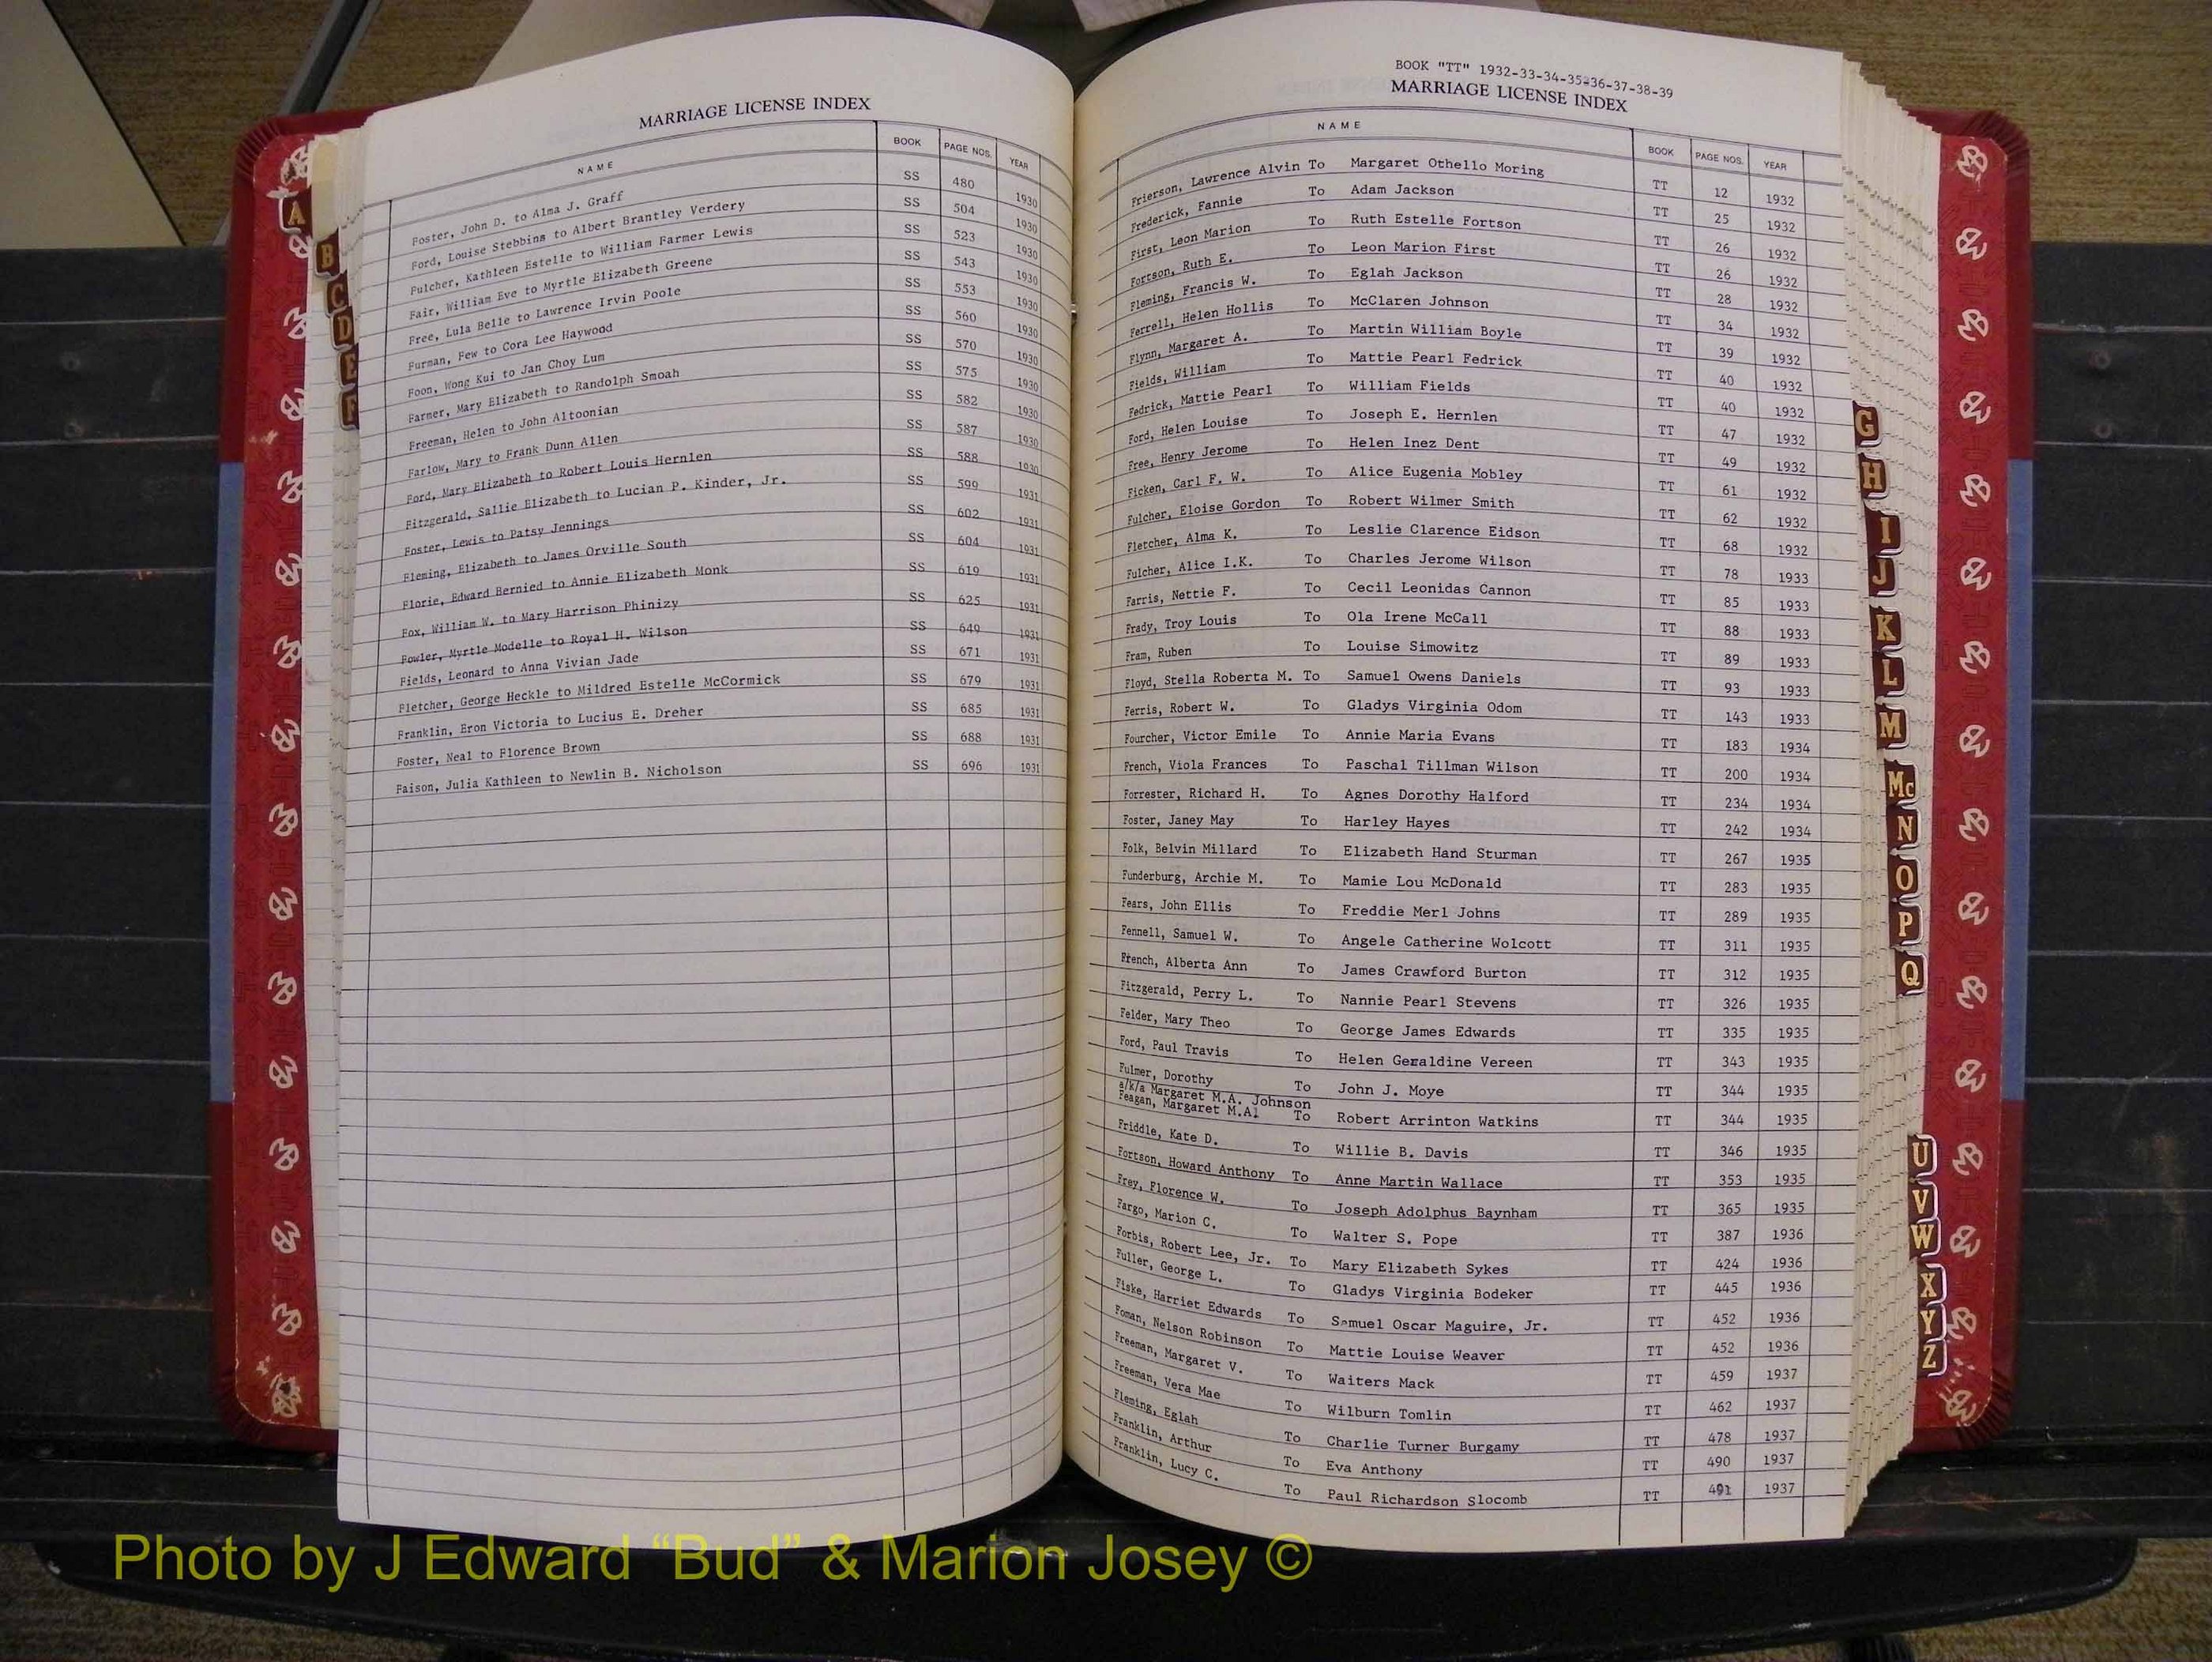 MARRIAGE LICENSE INDEX
NAME BOOK PAGE NOS. YEAR
Foster, John D. to Alma J. Graff SS 480 1930
Ford, Louise Stebbins to Albert Brantley Verdery SS 504 1930
Fulcher, Kathleen Estelle to William Farmer Lewis SS 523 1930
Fair, William Eve to Myrtle Elizabeth Greene SS 543 1930
Free, Lula Belle to Lawrence Irvin Poole SS 553 1930
Furman, Few to Cora Lee Haywood SS 560 1930
Foon, Wong Kui to Jan Choy Lum SS 570 1930
Farmer, Mary Elizabeth to Randolph Smoah SS 575 1930
Freeman, Helen to John Altoonian SS 582 1930
Farlow, Mary to Frank Dunn Allen SS 587 1930
Ford, Mary Elizabeth to Robert Louis Hernlen SS 588 1930
Fitzgerald, Sallie Elizabeth to Lucian P. Kinder, Jr. SS 599 1931
Foster, Lewis to Patsy Jennings SS 602 1931
Fleming, Elizabeth to James Orville South SS 604 1931
Florie, Edward Bernied to Annie Elizabeth Monk SS 619 1931
Fox, William W. to Mary Harrison Phinizy SS 625 1931
Fowler, Myrtle Modelle to Royal H. Wilson SS 649 1931
Fields, Leonard to Anna Vivian Jade SS 671 1931
Fletcher, George Heckle to Mildred Estelle McCormick SS 679 1931
Franklin, Eron Victoria to Lucius E. Dreher SS 685 1931
Foster, Neal to Florence Brown SS 688 1931
Faison, Julia Kathleen to Newlin B. Nicholson SS 696 1931
BOOK "TT" 1932-33-34-35-36-37-38-39
MARRIAGE LICENSE INDEX
NAME BOOK PAGE NOS. YEAR
Frierson, Lawrence Alvin To Margaret Othello Moring TT 12 1932
Frederick, Fannie To Adam Jackson TT 25 1932
First, Leon Marion To Ruth Estelle Fortson TT 26 1932
Fortson, Ruth E. To Leon Marion First TT 26 1932
Fleming, Francis W. To Eglah Jackson TT 28 1932
Ferrell, Helen Hollis To McClaren Johnson TT 34 1932
Flynn, Margaret A. To Martin William Boyle TT 39 1932
Fields, William To Mattie Pearl Fedrick TT 40 1932
Fedrick, Mattie Pearl To William Fields TT 40 1932
Ford, Helen Louise To Joseph E. Hernlen TT 47 1932
Free, Henry Jerome To Helen Inez Dent TT 49 1932
Ficken, Carl F. W. To Alice Eugenia Mobley TT 61 1932
Fulcher, Eloise Gordon To Robert Wilmer Smith TT 62 1932
Fletcher, Alma K. To Leslie Clarence Eidson TT 68 1932
Fulcher, Alice I.K. To Charles Jerome Wilson TT 78 1933
Farris, Nettie F. To Cecil Leonidas Cannon TT 85 1933
Frady, Troy Louis To Ola Irene McCall TT 88 1933
Fram, Ruben To Louise Simowitz TT 89 1933
Floyd, Stella Roberta M. To Samuel Owens Daniels TT 93 1933
Ferris, Robert W. To Gladys Virginia Odom TT 143 1933
Fourcher, Victor Emile To Annie Maria Evans TT 183 1934
French, Viola Frances To Paschal Tillman Wilson TT 200 1934
Forrester, Richard H. To Agnes Dorothy Halford TT 234 1934
Foster, Janey May To Harley Hayes TT 242 1934
Folk, Belvin Millard To Elizabeth Hand Sturman TT 267 1935
Funderburg, Archie M. To Mamie Lou McDonald TT 283 1935
Fears, John Ellis To Freddie Merl Johns TT 289 1935
Fennell, Samuel W. To Angele Catherine Wolcott TT 311 1935
French, Alberta Ann To James Crawford Burton TT 312 1935
Fitzgerald, Perry L. To Nannie Pearl Stevens TT 326 1935
Felder, Mary Theo To George James Edwards TT 335 1935
Ford, Paul Travis To Helen Geraldine Vereen TT 343 1935
Fulmer, Dorothy To John J. Moye TT 344 1935
a/k/a Margaret M.A. Johnson
Feagan, Margaret M.A. To Robert Arrinton Watkins TT 344 1935
Friddle, Kate D. To Willie B. Davis TT 346 1935
Fortson, Howard Anthony To Anne Martin Wallace TT 353 1935
Frey, Florence W. To Joseph Adolphus Baynham TT 365 1935
Fargo, Marion C. To Walter S. Pope TT 387 1936
Forbis, Robert Lee, Jr. To Mary Elizabeth Sykes TT 424 1936
Fuller, George L. To Gladys Virginia Bodeker TT 445 1936
Fiske, Harriet Edwards To Samuel Oscar Maguire, Jr. TT 452 1936
Foman, Nelson Robinson To Mattie Louise Weaver TT 452 1936
Freeman, Margaret V. To Waiters Mack TT 459 1937
Freeman, Vera Mae To Wilburn Tomlin TT 462 1937
Fleming, Eglah To Charlie Turner Burgamy TT 478 1937
Franklin, Arthur To Eva Anthony TT 490 1937
Franklin, Lucy C. To Paul Richardson Slocomb TT 491 1937
A
B
C
D
E
F
G
H
I
J
K
L
M
Mc
N
O
P
Q
U
V
W
X
Y
Z
Photo by J Edward “Bud” & Marion Josey ©